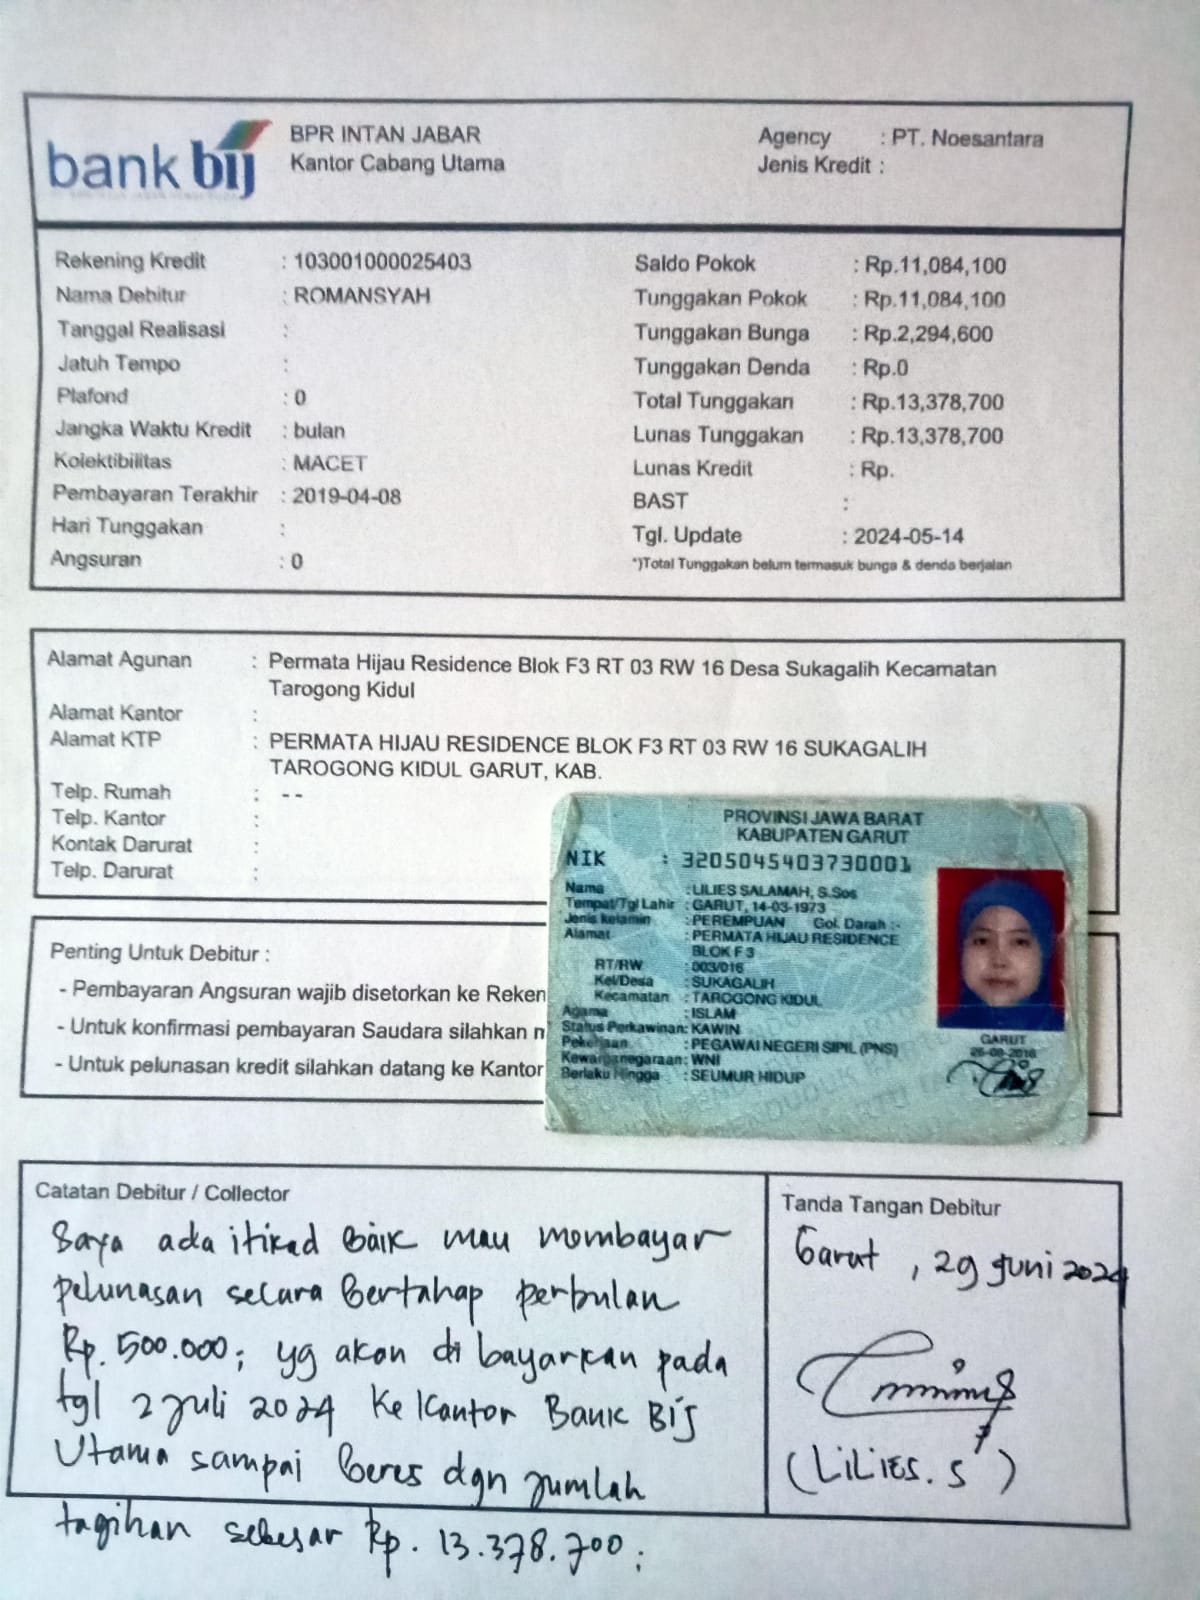 bank bij
BPR INTAN JABAR
Kantor Cabang Utama
Agency : PT. Noesantara
Jenis Kredit :
Rekening Kredit : 103001000025403
Nama Debitur : ROMANSYAH
Tanggal Realisasi :
Jatuh Tempo :
Plafond : 0
Jangka Waktu Kredit : bulan
Kolektibilitas : MACET
Pembayaran Terakhir : 2019-04-08
Hari Tunggakan :
Angsuran : 0
Saldo Pokok : Rp.11,084,100
Tunggakan Pokok : Rp.11,084,100
Tunggakan Bunga : Rp.2,294,600
Tunggakan Denda : Rp.0
Total Tunggakan : Rp.13,378,700
Lunas Tunggakan : Rp.13,378,700
Lunas Kredit : Rp.
BAST :
Tgl. Update : 2024-05-14
*)Total Tunggakan belum termasuk bunga & denda berjalan
Alamat Agunan : Permata Hijau Residence Blok F3 RT 03 RW 16 Desa Sukagalih Kecamatan
Tarogong Kidul
Alamat Kantor :
Alamat KTP : PERMATA HIJAU RESIDENCE BLOK F3 RT 03 RW 16 SUKAGALIH
TAROGONG KIDUL GARUT, KAB.
Telp. Rumah : --
Telp. Kantor :
Kontak Darurat :
Telp. Darurat :
PROVINSI JAWA BARAT
KABUPATEN GARUT
NIK : 3205045403730001
Nama : LILIES SALAMAH, S.Sos
Tempat/Tgl Lahir : GARUT, 14-03-1973
Jenis kelamin : PEREMPUAN Gol. Darah :-
Alamat : PERMATA HIJAU RESIDENCE
BLOK F 3
RT/RW : 003/016
Kel/Desa : SUKAGALIH
Kecamatan : TAROGONG KIDUL
Agama : ISLAM
Status Perkawinan: KAWIN
Pekerjaan : PEGAWAI NEGERI SIPIL (PNS)
Kewarganegaraan: WNI
Berlaku Hingga : SEUMUR HIDUP
GARUT
Penting Untuk Debitur :
- Pembayaran Angsuran wajib disetorkan ke Reken
- Untuk konfirmasi pembayaran Saudara silahkan m
- Untuk pelunasan kredit silahkan datang ke Kantor
Catatan Debitur / Collector
Saya ada itikad Baik mau membayar
pelunasan secara Bertahap perbulan
Rp. 500.000; yg akan di bayarkan pada
tgl 2 Juli 2024 Ke Kantor Bank Bij
Utama sampai beres dgn jumlah
tagihan sebesar Rp. 13.378.700;
Tanda Tangan Debitur
Garut, 29 Juni 2024
(LiLiES. S)